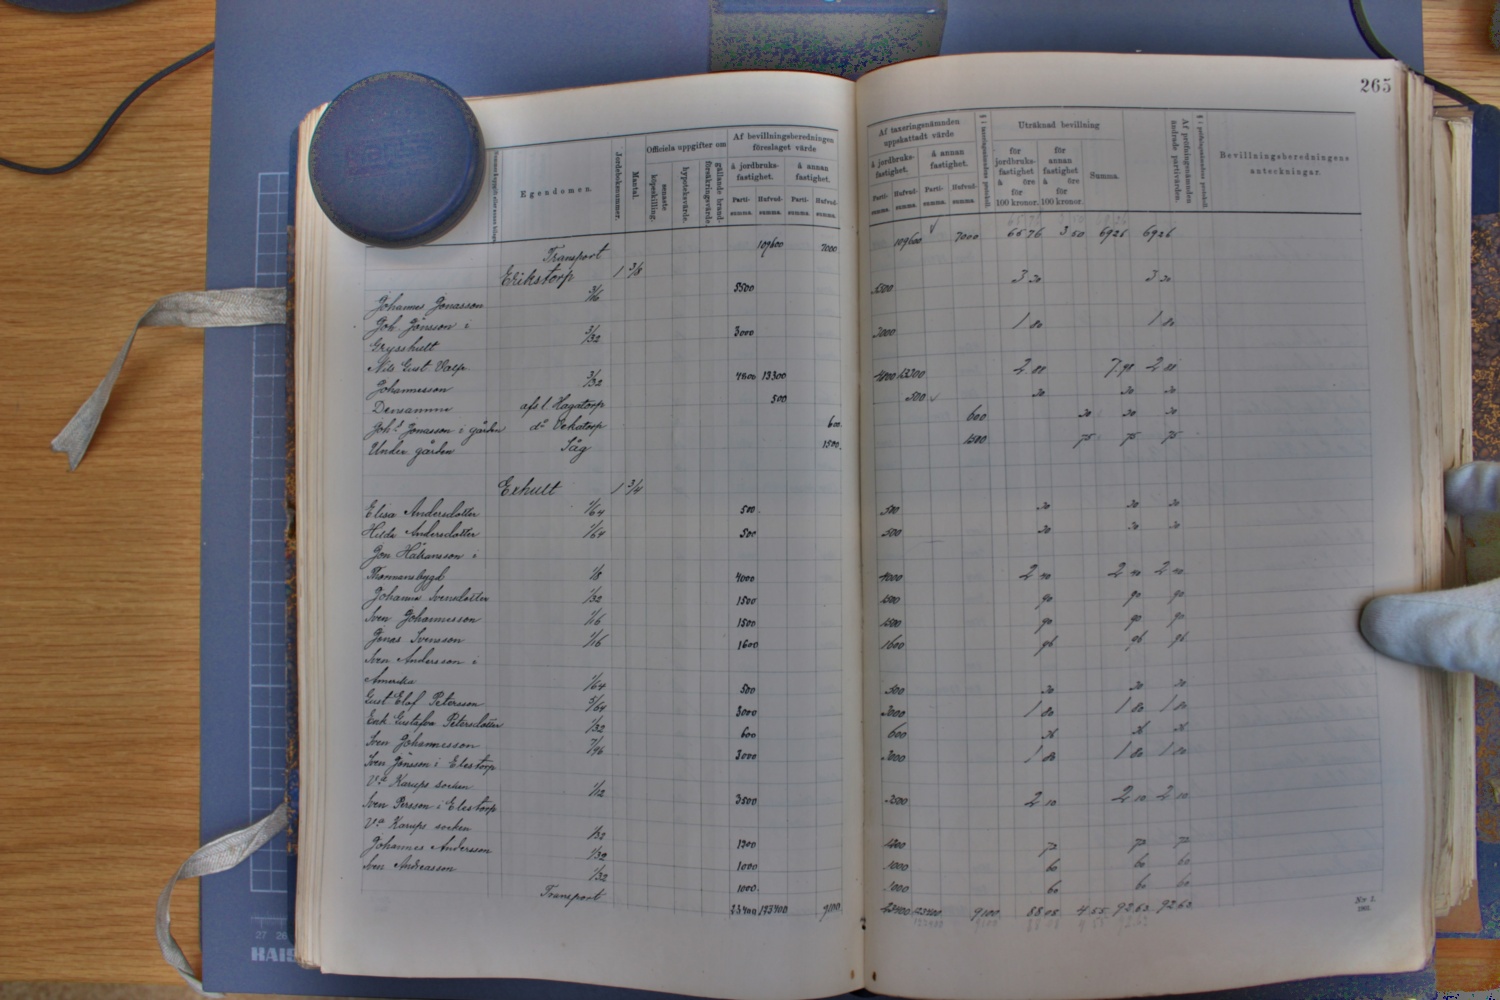 265
Egendomen.
Jordeboksnummer.
Mantal.
Officiela uppgifter om
senaste köpeskilling.
hypoteksvärde.
gällande brandförsäkringsvärde.
Af bevillningsberedningen föreslaget värde
å jordbruksfastighet.
å annan fastighet.
Partisumma.
Hufvudsumma.
Partisumma.
Hufvudsumma.
Af taxeringsnämnden uppskattadt värde
å jordbruksfastighet.
å annan fastighet.
Partisumma.
Hufvudsumma.
Partisumma.
Hufvudsumma.
Uträknad bevillning
för jordbruksfastighet å öre för 100 kronor.
för annan fastighet å öre för 100 kronor.
Summa.
Af pröfningsnämnden ändrade partivärden.
Bevillningsberedningens anteckningar.
Transport 109600 7000 109600 7000 6576 3 50 6926 6926
Erikstorp 1 3/8
Johannes Jonasson 3/16 5500 5500 3 30 3 30
Joh. Jönsson i
Grysshult 3/32 3000 3000 1 80 1 80
Nils Gust Valfr.
Johannesson 3/32 4800 13300 4800 13300 2 88 7,98 2 88
Densamme afs l. Hagatorp 500 500 30 30 30
Joh.s Jonasson i gården d:o Vekatorp 600 600 30 30 30
Under gården Såg 1500. 1500 75 75 75
Exhult 1 3/4
Elisa Andersdotter 1/64 500. 500 30 30 30
Hilda Andersdotter 1/64 500 500 30 30 30
Jon Håkansson i
Thormansbygd 1/8 4000 4000 2 40 2 40 2 40
Johanna Svensdotter 1/32 1500 1500 90 90 90
Sven Johannesson 1/16 1500 1500 90 90 90
Jonas Svensson 1/16 1600 1600 96 96 96
Sven Andersson i
Amerika 1/64 500 500 30 30 30
Gust Elof Petersson 5/64 3000 3000 1 80 1 80 1 80
Enk. Gustafva Petersdotter 1/32 600 600 36 36 36
Sven Johannesson 7/96 3000 3000 1 80 1 80 1 80
Sven Jönsson i Elestorp
V:a Karups socken 1/12 3500 3500 2 10 2 10 2 10
Sven Persson i Elestorp
V:a Karups socken 1/32 1200 1200 72 72 72
Johannes Andersson 1/32 1000 1000 60 60 60
Sven Andreasson 1/32 1000. 1000 60 60 60
Transport 23400 123400 9100 23400 123400 9100 88 08 4 55 9263 9263
Nr 2.
27 26
HAIS